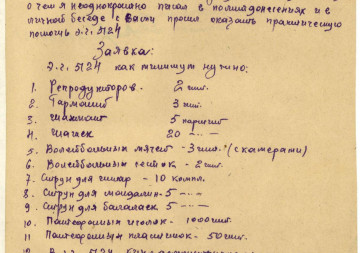 о чем я неоднократно писал в политдонесениях и в
личной беседе с Вами просил оказать практическую
помощь э.г. 5124
Заявка:
Э.г. 5124 как минимум нужно:
1. Репродукторов. 2 шт.
2. Гармошек 3 шт.
3. Шахмат 5 партий
4. Шашек 20 -"-
5. Волейбольных мячей - 3 шт. (с камерами)
6. Волейбольных сеток - 2 шт.
7. Струн для гитар - 10 компл.
8. Струн для мандалин - 5 -"-
9. Струн для балалаек 5 -"-
10. Патефонных иголок - 1000 шт.
11. Патефонных пластинок - 50 шт.